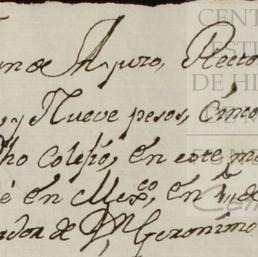 de Ayuro, Recto
y Nueve pesos, Cinco
dho Colejio, en este me
é en Mexco, en
ador de Dn Geronimo
CEN
EST
DE HI